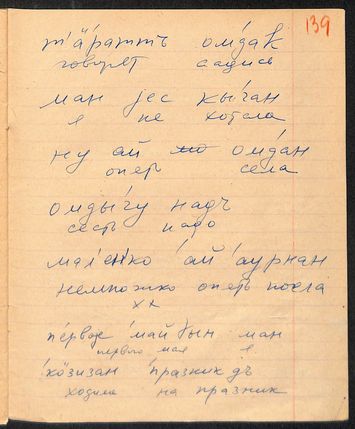 139
т'а́ратть омдак
говорят садись
ман jес кы́ган
я не хотела
ну ай омдан
опеть села
омды́гу надъ
сесть надо
мал'енко ай аурнан
немножко опеть поела
первое май дын ман
первого мая я
ко́зизан празник дъ
ходила на празник